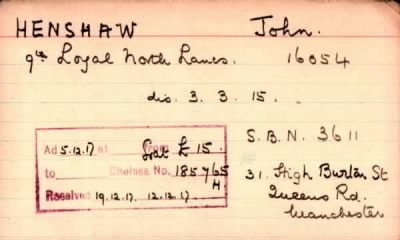 HENSHAW John.
9th Loyal North Lancs. 16054
dis. 3. 3. 15.
S.B.N. 3611
Ad 5.12.17 at from £ 15.
to Chelsea No. 185765
H
Received 19.12.17. 12.12.17.
31. High Burton St
Queens Rd.
Manchester